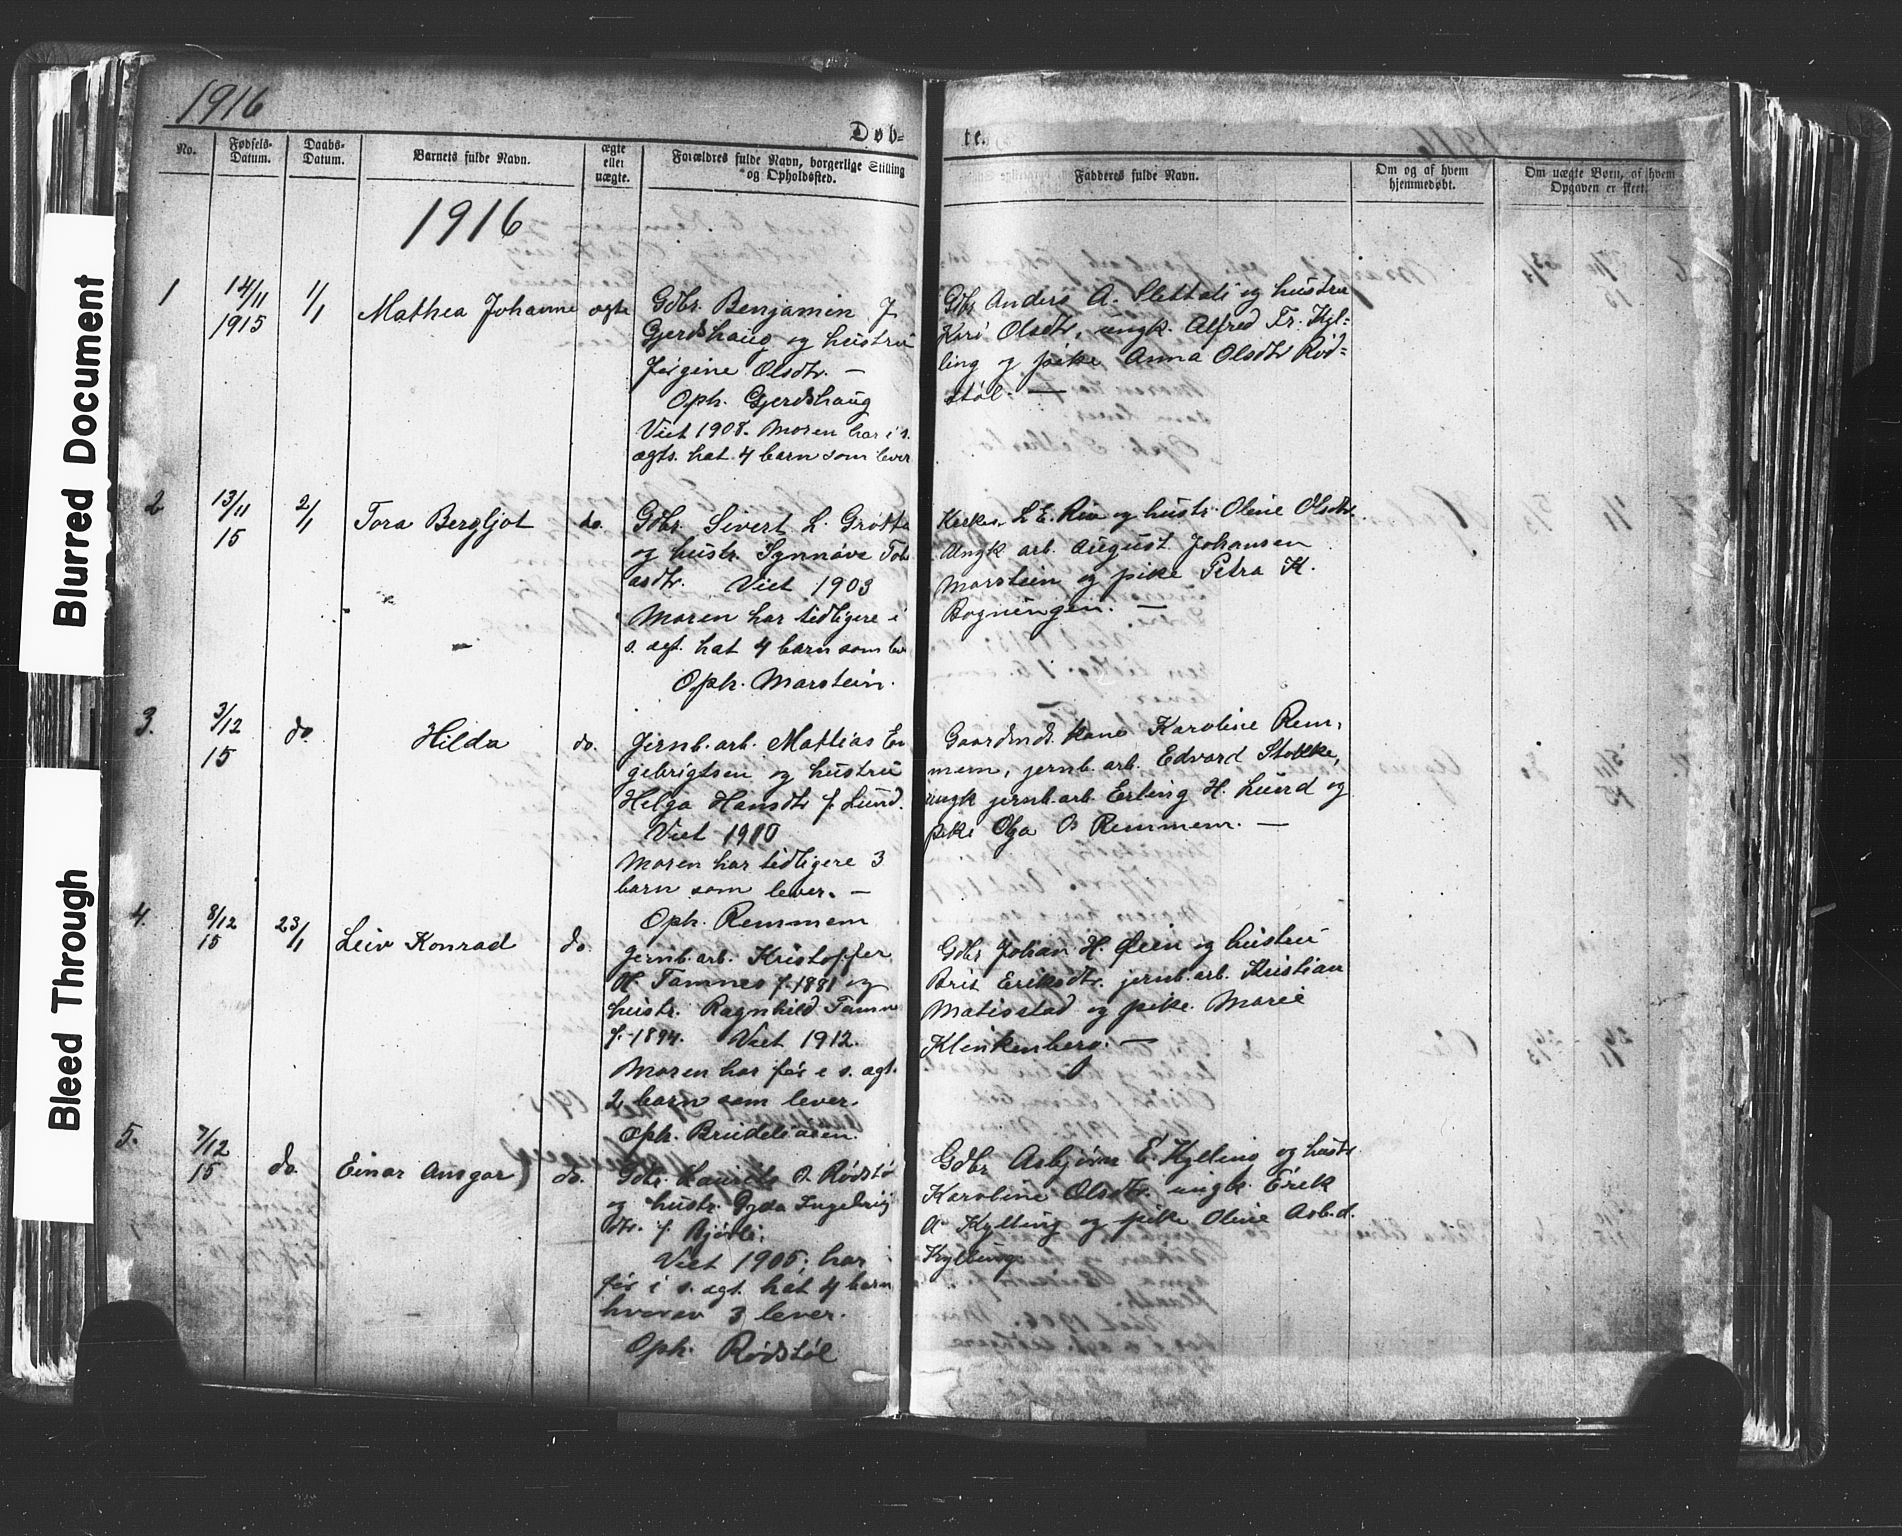 1916
Døb-
te.
1916
No.
Fødsels-
Datum.
Daabs-
Datum.
Barnets fulde Navn.
ægte
eller
uægte.
Forældres fulde Navn, borgerlige Stilling
og Opholdssted.
Fadderes fulde Navn.
Om og af hvem
hjemmedøbt.
Om uægte Børn, af hvem
Opgaven er skeet.
1916
1
14/11
1915
1/1
Mathea Johanne
ægte
Gdbr. Benjamin J.
Gjerdshaug og hustru
Jørgine Olsdtr. —
Oph. Gjerdshaug
Viet 1908. Moren har i s.
ægts. hat 4 barn som lever
Gdbr Anders A. Slettali og hustru
Kari Olsdtr, ungk. Alfred Fr. Kyl-
ling og pike Anna Olsdtr Rød-
støl. —
2
13/11
15
2/1
Tora Bergljot
do.
Gdbr. Sivert L. Grøtte
og hustr. Synnøve Tob
asdtr. Viet 1903
Moren har tidligere i
s. ægt. hat 4 barn som lev
Oph. Marstein.
Kirkes. L E. Rise og hustr. Oline Olsdtr.
Ungk arb. August Johansen
Marstein og pike Petra K.
Bogningen. —
3.
3/12
15
do
Hilda
do.
Jernb.arb. Mattias En
gebrigtsen og hustru
Helga Hansdtr f. Lund.
Viet 1910
Moren har tidligere 3
barn som lever. —
Oph. Remmem
Gaardmds. kone Karoline Rem,
mem, jernb. arb. Edvard Stokke,
ungk jernb.arb. Erling H. Lund og
pike Olga O Remmem. —
4.
8/12
15
23/1
Leiv Konrad
do.
Jernb.arb. Kristoffer
H. Tamnes f. 1881 og
hustr. Ragnhild Tamn
f. 1894. Viet 1912.
Moren har før i s. ægt.
2 barn som lever.
Oph. Brudeløsen.
Gdbr Johan H. Øien og hustru
Brit Eriksdtr. jernb.arb. Kristian
Matisstad og pike. Marie
Klinkenberg. —
5.
7/12
15
do
Einar Ansgar
do.
Gdbr. Laurits O. Rødstø
og hustr. Gyda Ingebrig
dtr. f. Bjørli.
Viet 1905; har
før i s. ægt. hat 4 barn
hvorav 3 lever.
Oph. Rødstøl
Gdbr Asbjørn E. Kylling og hustr
Karoline Olsdtr. ungk. Erik
A. Kylling og pike Oline Asb.d.
Kylling.
Blurred Document
Bleed Through